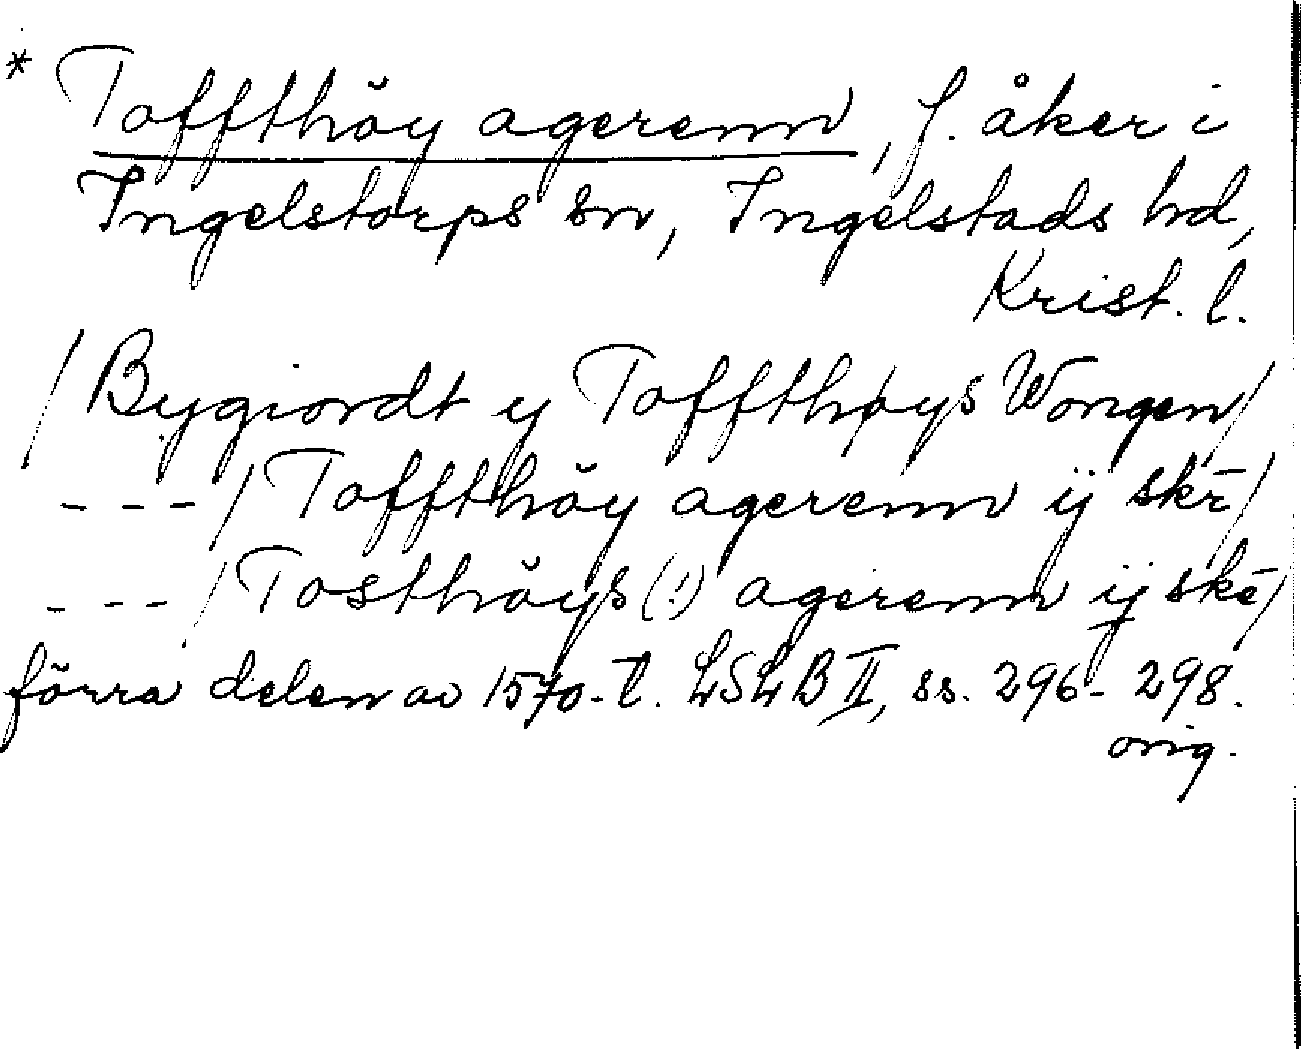 * Toffthŏy agerenn, f. åker i
Ingelstorps sn, Ingelstads hd,
Krist. l.
/Bygiordt y Toffthøys Wongen/
---/Toffthŏy agerenn ij skr̄/
---/Tosthŏys(!) agerenn ij skē/
förra delen av 1570-t. LSLB II, ss. 296-298.
orig.